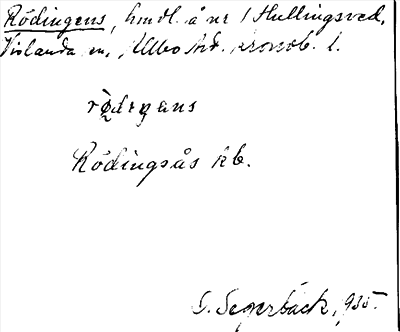 Rödingens, hmdl. å nr 1 Hullingsved,
Vislanda sn, Allbo hd. Kronob. l.
Rödingsås kb.
S. Segerbäck, 1935.